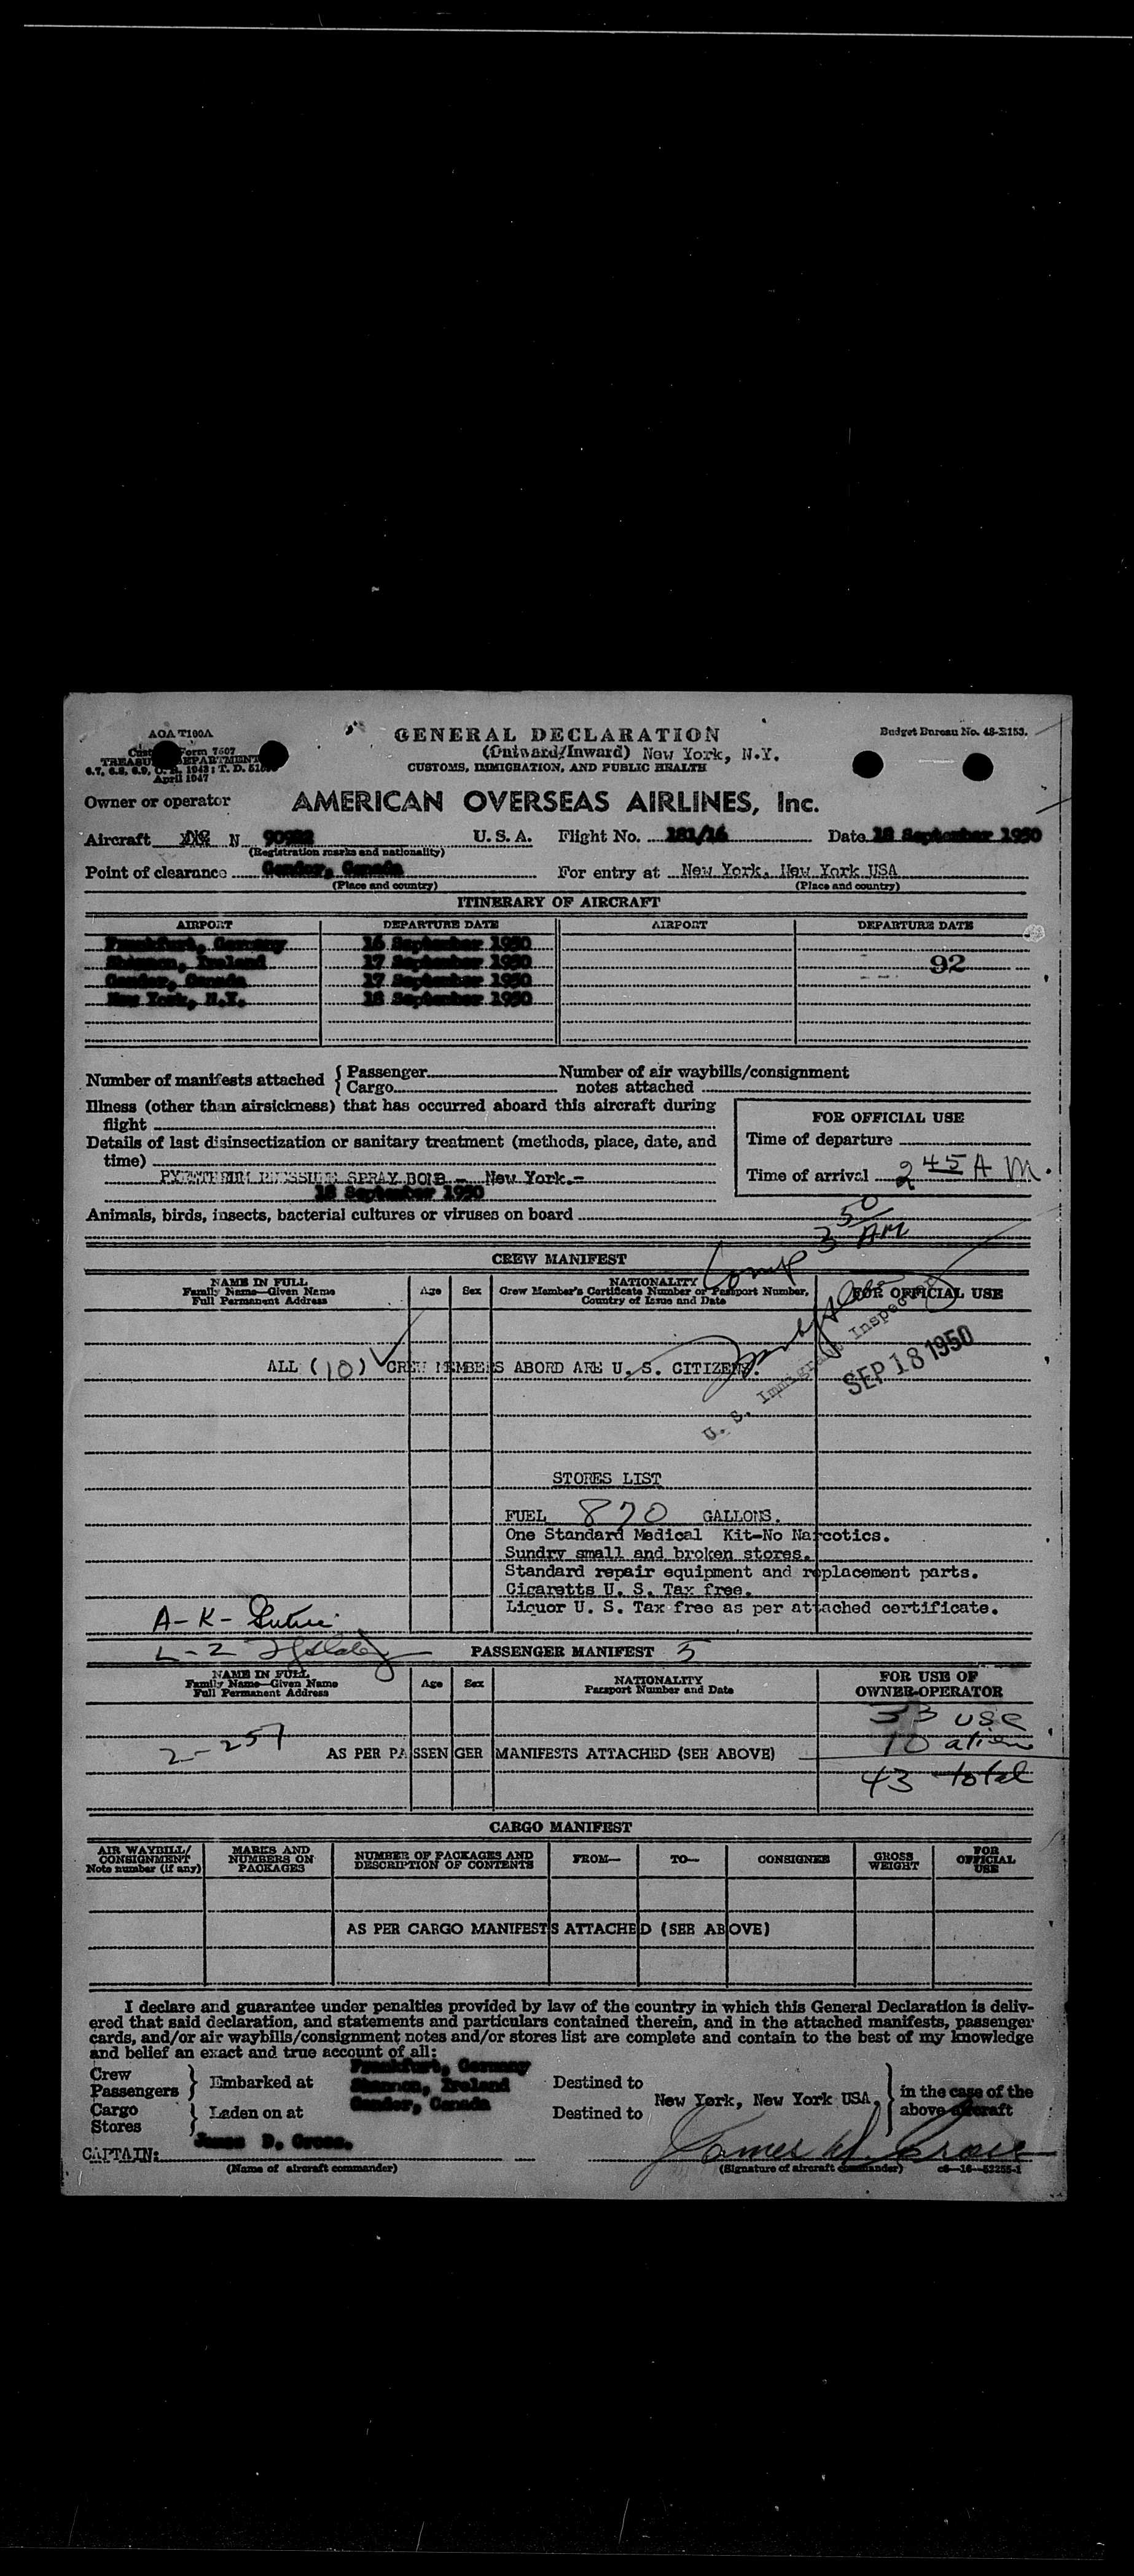 AOA T100A
GENERAL DECLARATION
Budget Bureau No. 48-R153.
Form 7507
(Outward/Inward) New York, N.Y.
TREASURY DEPARTMENT
CUSTOMS, IMMIGRATION, AND PUBLIC HEALTH
April 1947
Owner or operator AMERICAN OVERSEAS AIRLINES, Inc.
Aircraft N U. S. A. Flight No. 181/16 Date 18 September 1950
(Registration marks and nationality)
Point of clearance Gander, Canada For entry at New York, New York USA
(Place and country) (Place and country)
ITINERARY OF AIRCRAFT
AIRPORT DEPARTURE DATE AIRPORT DEPARTURE DATE
Frankfurt, Germany 16 September 1950
Shannon, Ireland 17 September 1950 92
Gander, Canada 17 September 1950
New York, N.Y. 18 September 1950
Number of manifests attached { Passenger Number of air waybills/consignment
Cargo notes attached
Illness (other than airsickness) that has occurred aboard this aircraft during
flight
FOR OFFICIAL USE
Details of last disinsectization or sanitary treatment (methods, place, date, and
time)
Time of departure
SPRAY BOMB - New York.-
Time of arrival 2 45 A M.
18 September 1950
Animals, birds, insects, bacterial cultures or viruses on board
Comp 3 50 AM
CREW MANIFEST
NAME IN FULL Age Sex NATIONALITY FOR OFFICIAL USE
Family Name—Given Name Crew Member's Certificate Number or Passport Number,
Full Permanent Address Country of Issue and Date
U. S. Immigrant Inspector
SEP 18 1950
ALL (10) CREW MEMBERS ABORD ARE U. S. CITIZENS.
STORES LIST
FUEL 870 GALLONS.
One Standard Medical Kit-No Narcotics.
Sundry small and broken stores.
Standard repair equipment and replacement parts.
Cigaretts U. S. Tax free.
Liquor U. S. Tax free as per attached certificate.
A-K-
L-Z
PASSENGER MANIFEST 5
NAME IN FULL Age Sex NATIONALITY FOR USE OF
Family Name—Given Name Passport Number and Date OWNER-OPERATOR
Full Permanent Address
33 USC
2-257
10 aliens
AS PER PASSENGER MANIFESTS ATTACHED (SEE ABOVE)
43 total
CARGO MANIFEST
AIR WAYBILL/ CONSIGNMENT Note number (if any) MARKS AND NUMBERS ON PACKAGES NUMBER OF PACKAGES AND DESCRIPTION OF CONTENTS FROM— TO— CONSIGNEE GROSS WEIGHT FOR OFFICIAL USE
AS PER CARGO MANIFESTS ATTACHED (SEE ABOVE)
I declare and guarantee under penalties provided by law of the country in which this General Declaration is deliv-
ered that said declaration, and statements and particulars contained therein, and in the attached manifests, passenger
cards, and/or air waybills/consignment notes and/or stores list are complete and contain to the best of my knowledge
and belief an exact and true account of all:
Crew
Passengers } Embarked at
Cargo
Stores } Laden on at
Frankfurt, Germany
Shannon, Ireland
Gander, Canada
Destined to
Destined to
New York, New York USA,
in the case of the
above aircraft
CAPTAIN: James D. Cross.
James D. Cross
(Name of aircraft commander) (Signature of aircraft commander) c8—16—52255-1